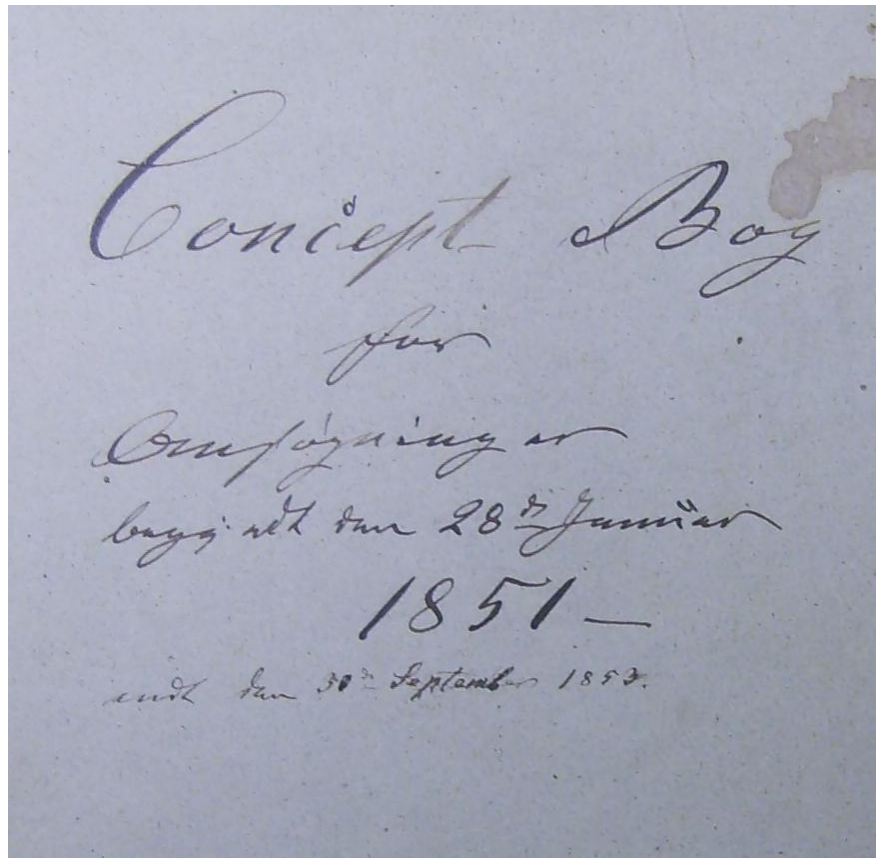 Concept Bog
for
Ansøgninger
begyndt den 28de Januar
1851 —
endt den 30te September 1853.